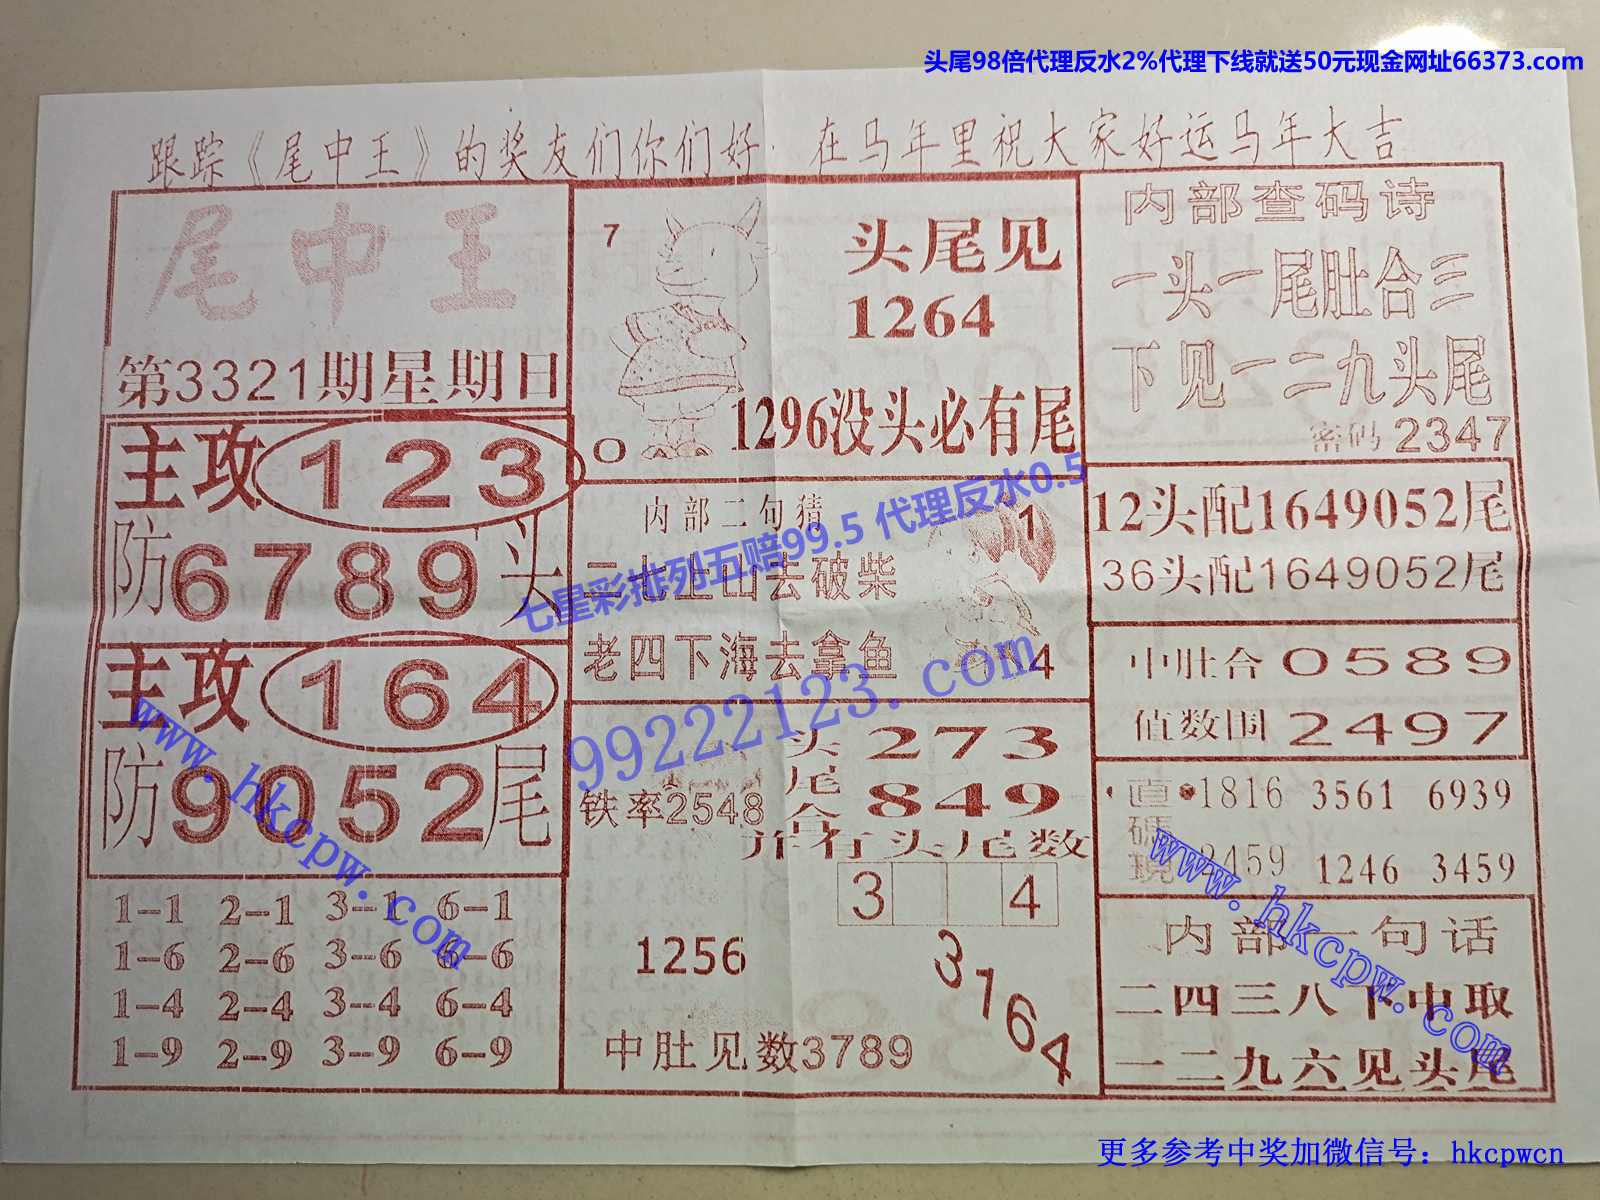 头尾98倍代理反水2%代理下线就送50元现金网址66373.com
跟踪《尾中王》的奖友们你们好．在马年里祝大家好运马年大吉
尾中王
第3321期星期日
主攻123
防6789头
主攻164
防9052尾
1-1 2-1 3-1 6-1
1-6 2-6 3-6 6-6
1-4 2-4 3-4 6-4
1-9 2-9 3-9 6-9
7
头尾见
1264
1296没头必有尾
0
内部二句猜
二七上山去破柴
老四下海去拿鱼
1
4
七星彩排列五赔99.5 代理反水0.5
99222123.com
铁率2548
头尾合
273
849
并有头尾数
3 4
1256
3164
中肚见数3789
内部查码诗
一头一尾肚合三
下见一二九头尾
密码2347
12头配1649052尾
36头配1649052尾
中肚合0589
值数围2497
直碼現
1816 3561 6939
2459 1246 3459
内部一句话
二四三八下中取
一二九六见头尾
www.hkcpw.com
www.hkcpw.com
更多参考中奖加微信号：hkcpwcn